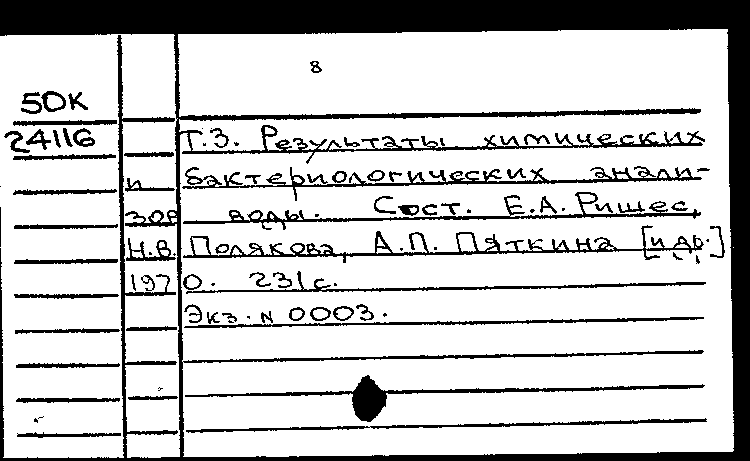 8
50К
24116 Т.3. Результаты химических
и бактериологических анали-
зов воды. Сост. Е.А. Ришес,
Н.В. Полякова, А.П. Пяткина [и др.]
1970. 231с.
Экз. № 0003.